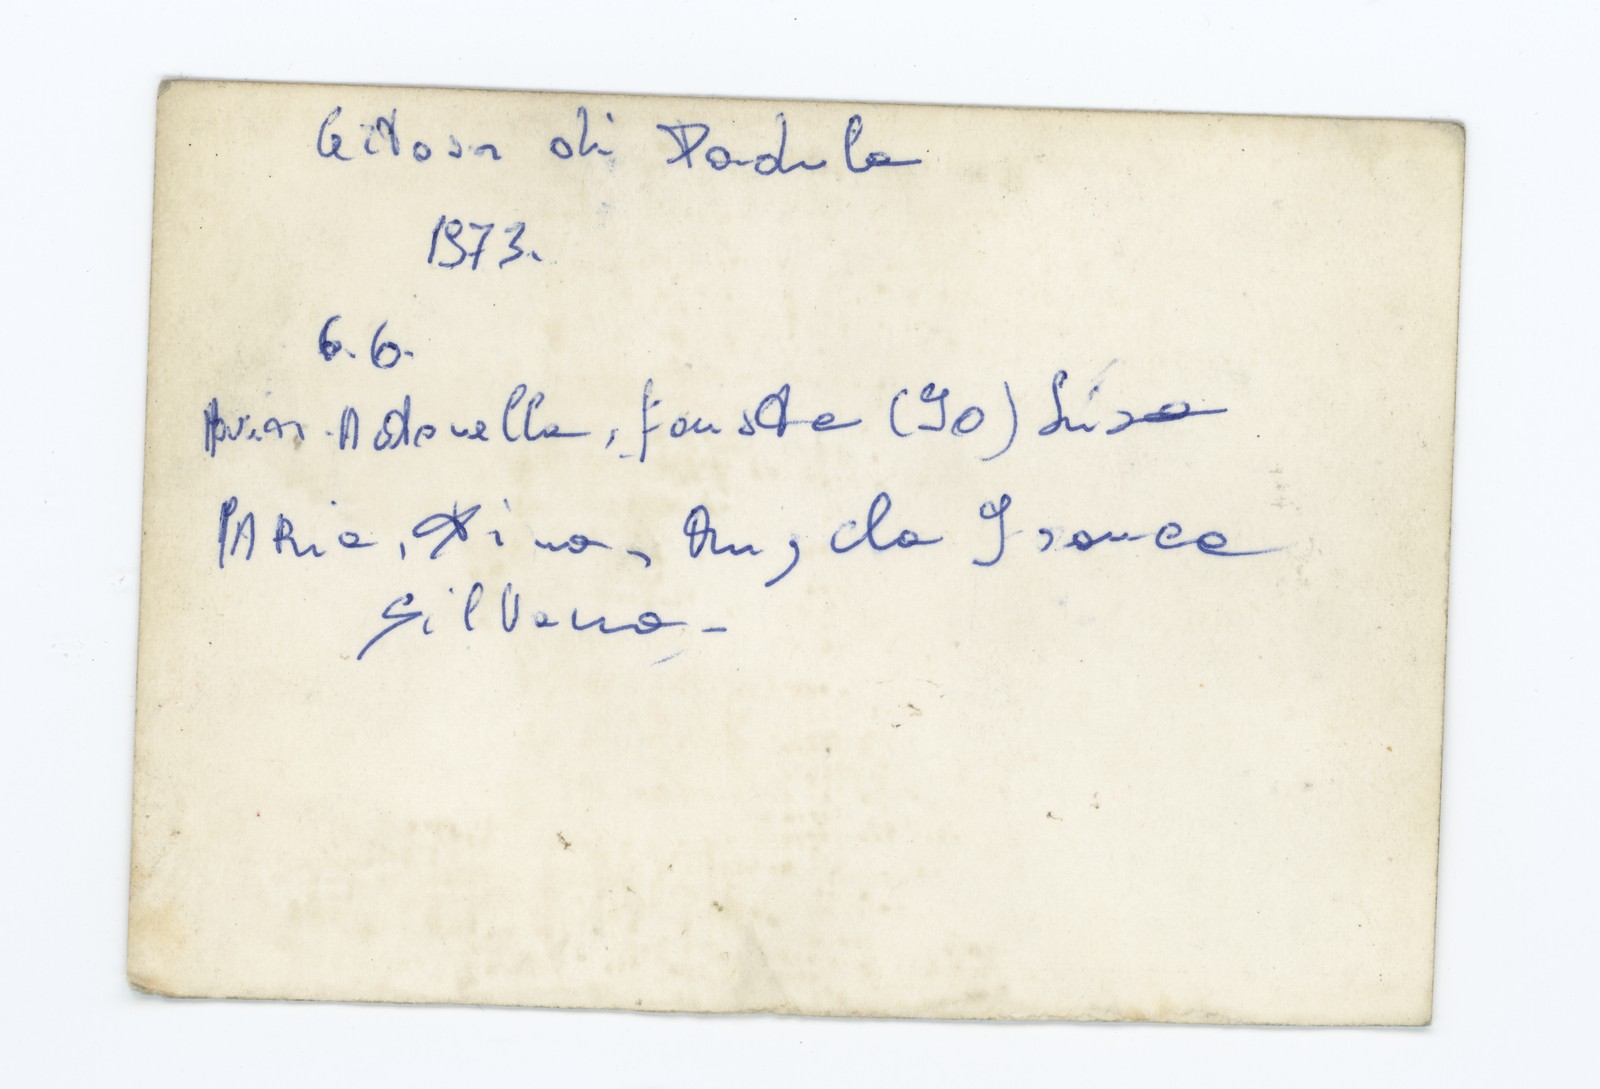 Certosa di Padula
1973.
6.6.
Antonella, Fausta (Io) Luisa
Maria, Pina, Angela Franca
Silvana -